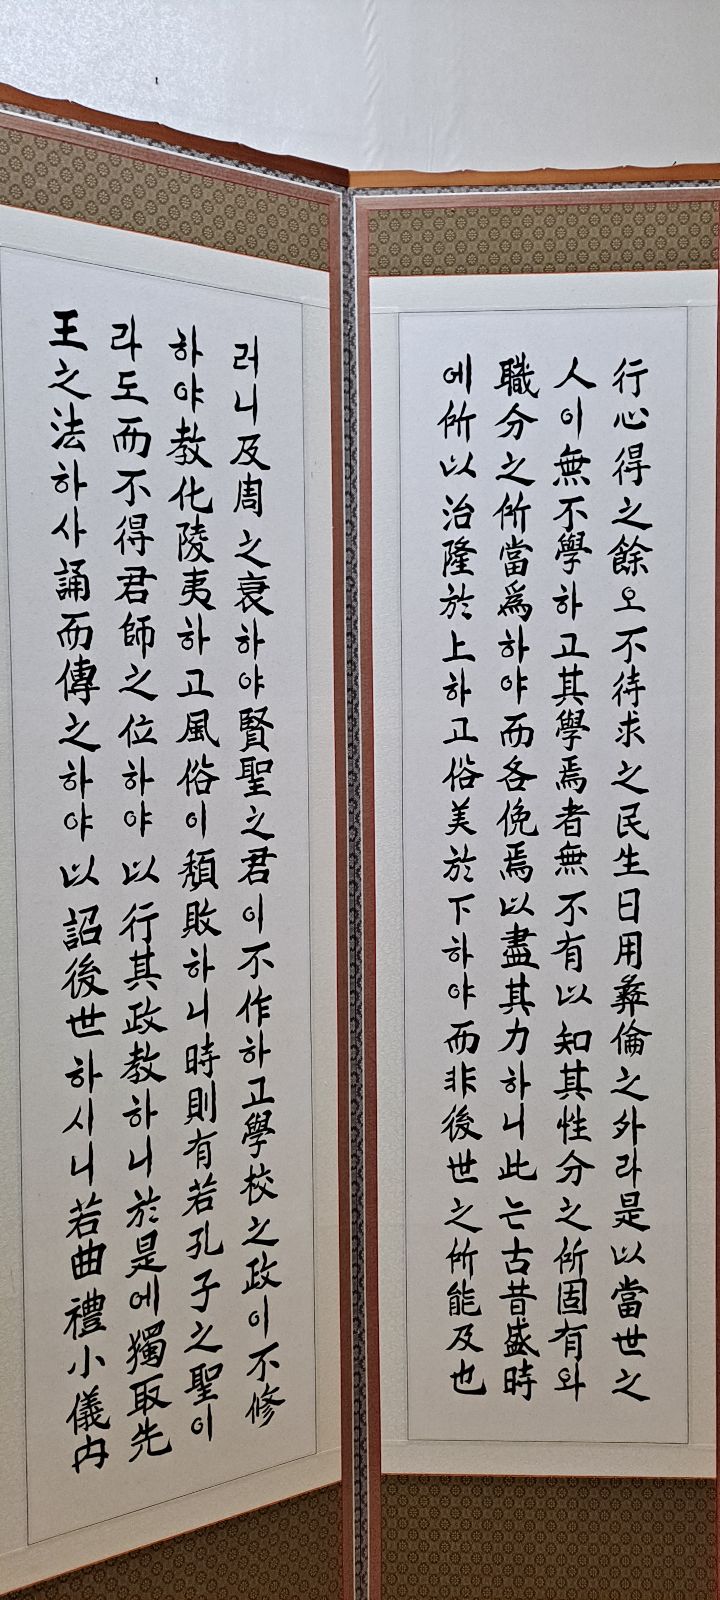 行心得之餘오不待求之民生日用彝倫之外라是以當世之
人이無不學하고其學焉者無不有以知其性分之所固有와
職分之所當爲하야而各俛焉以盡其力하니此는古昔盛時
에所以治隆於上하고俗美於下하야而非後世之所能及也
러니及周之衰하야賢聖之君이不作하고學校之政이不修
하야敎化陵夷하고風俗이頹敗하니時則有若孔子之聖이
라도而不得君師之位하야以行其政敎하니於是에獨取先
王之法하사誦而傳之하야以詔後世하시니若曲禮小儀內